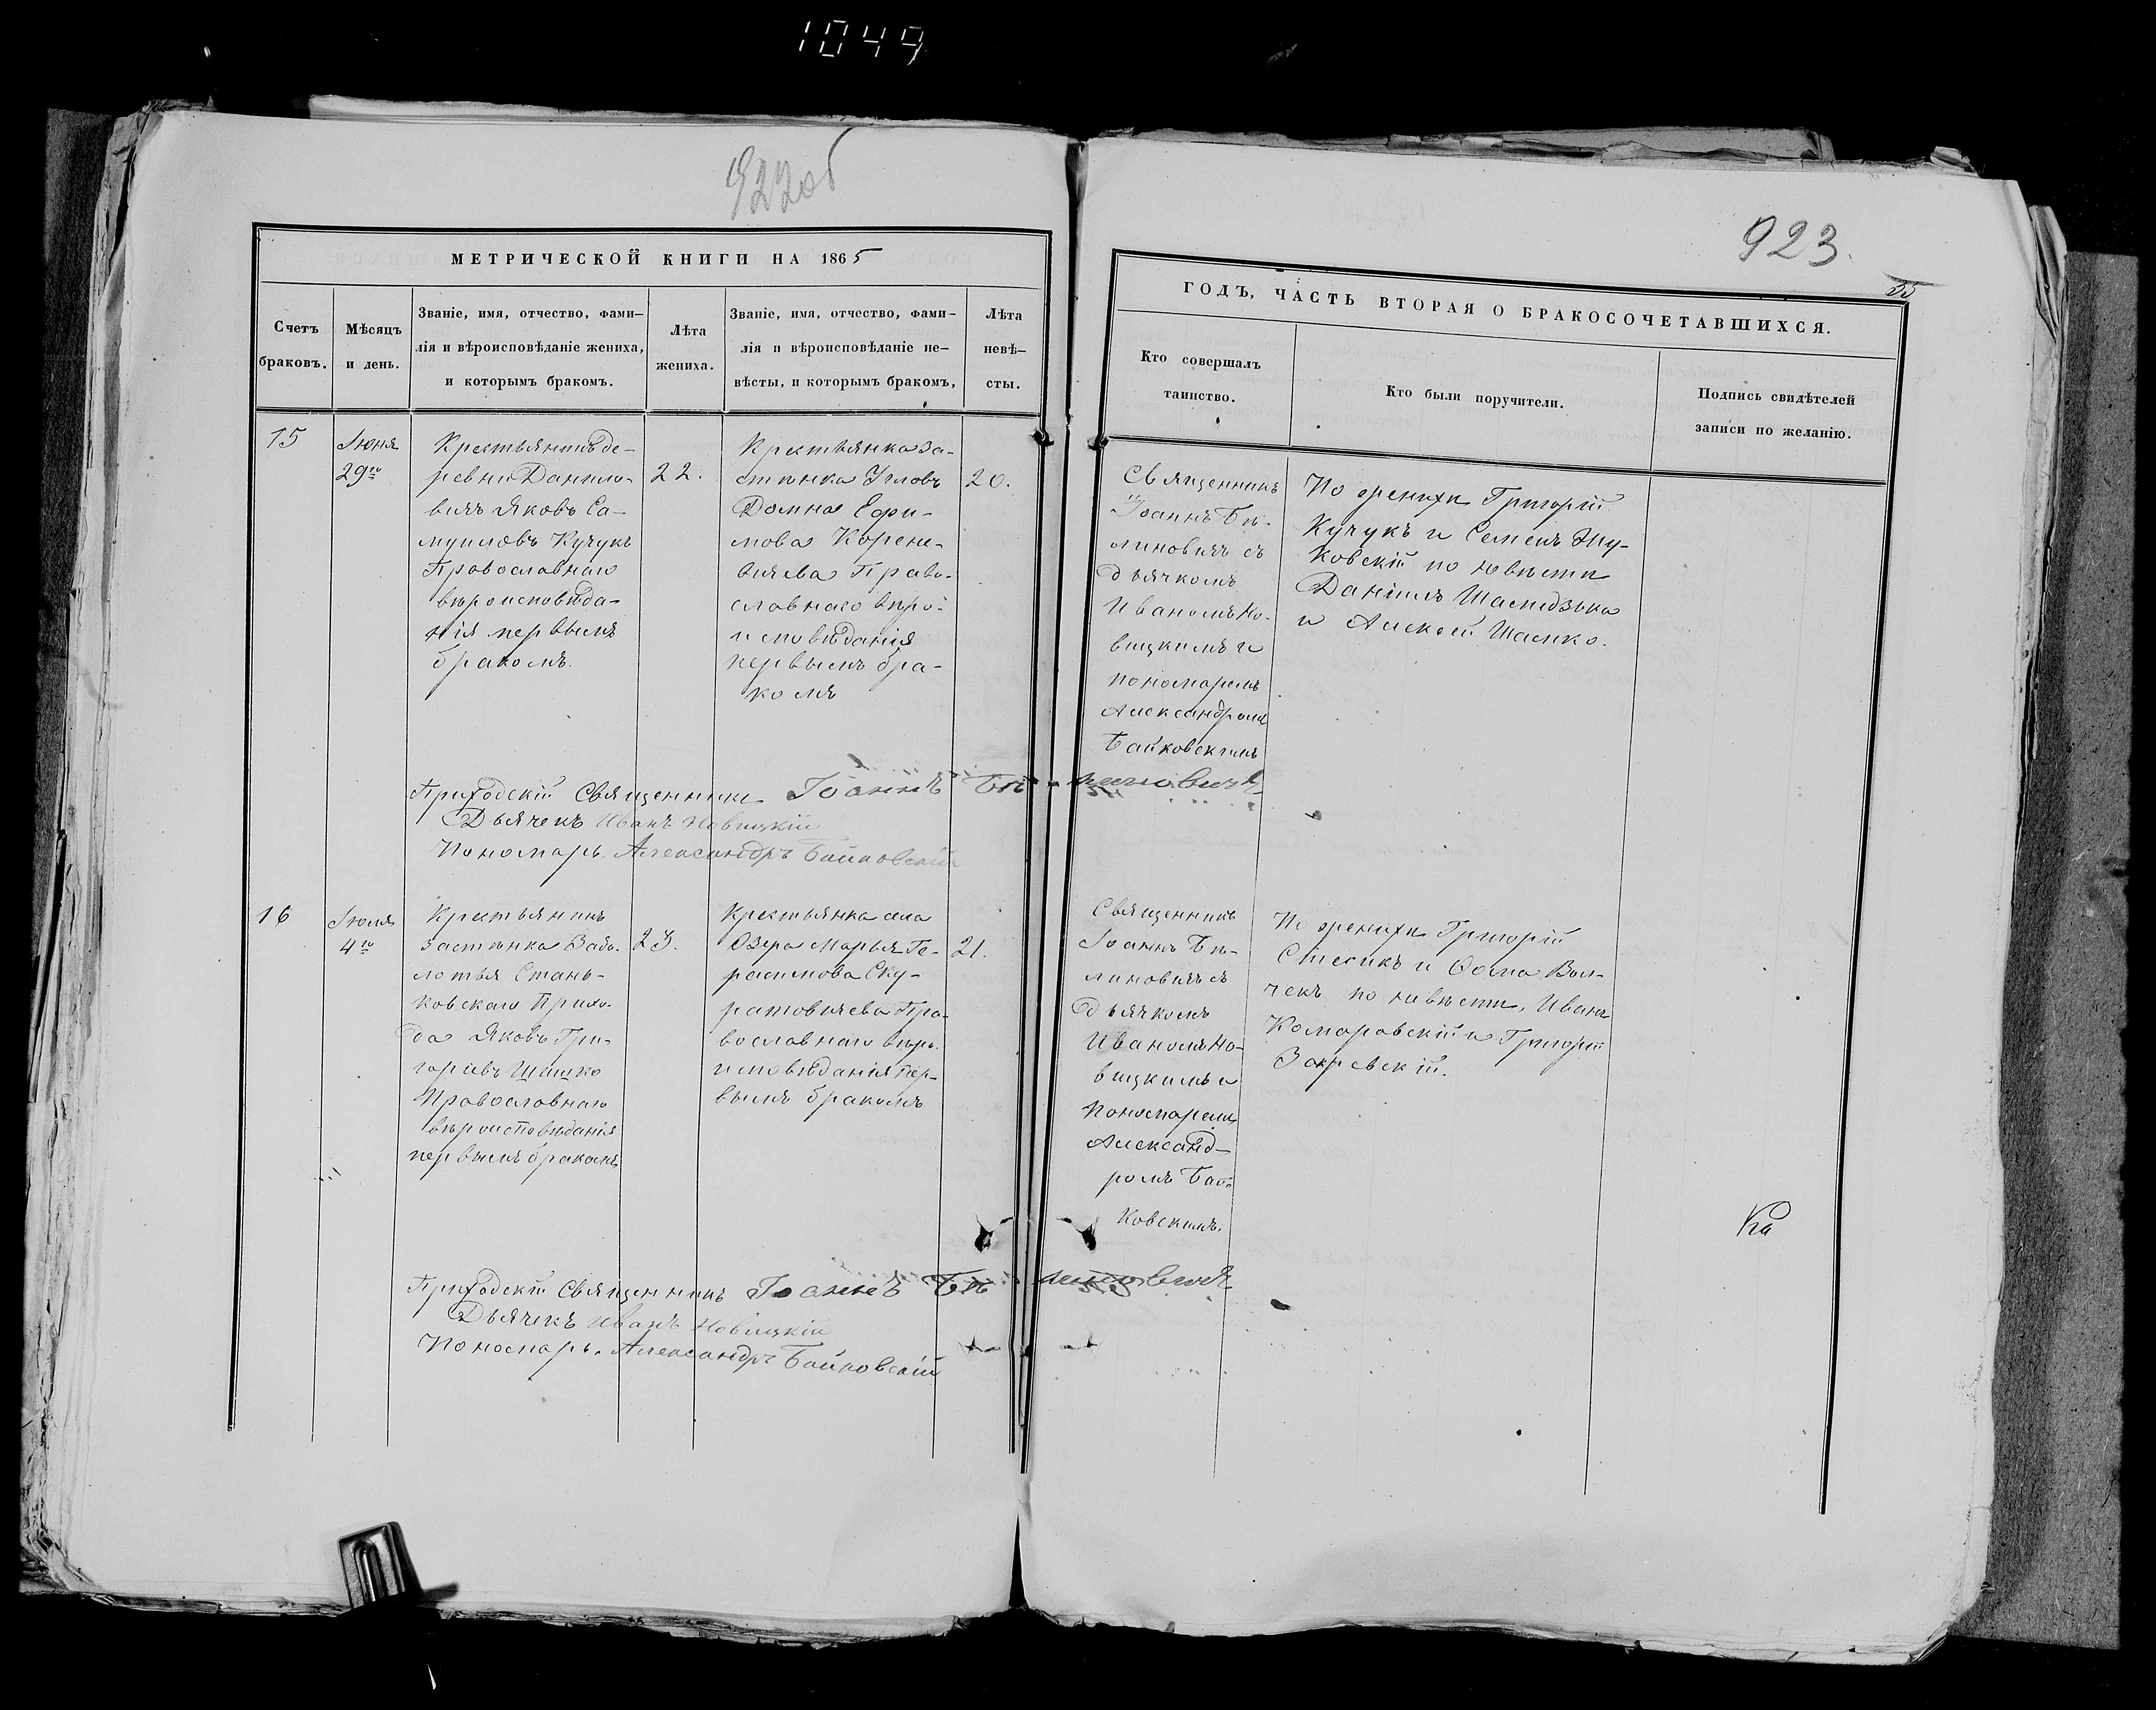 1049
922об
МЕТРИЧЕСКОЙ КНИГИ НА 1865
Счетъ браковъ.
Мѣсяцъ и день.
Званіе, имя, отчество, фами-
лія и вѣроисповѣданіе жениха,
и которымъ бракомъ.
Лѣта жениха.
Званіе, имя, отчество, фами-
лія и вѣроисповѣданіе не-
вѣсты, и которымъ бракомъ,
Лѣта невѣ-
сты.
15
Іюня
29го
Крестьянинъ де-
ревни Данило-
вичъ Яковъ Са-
муиловъ Кучукъ
Православнаго
вѣроисповѣда-
нія первымъ
бракомъ.
22.
Крестьянка за-
стѣнка Угловъ
Домна Ефи-
мова Корене-
вичева Право-
славнаго вѣро-
исповѣданія
первымъ бра-
комъ
20.
Приходскій Священникъ Іоаннъ Бѣ-линовичъ
Дьячекъ Иванъ Новицкій
Пономарь Александръ Байковскій
16
Іюля
4го
Крестьянинъ
застѣнка Забо-
лотья Стань-
ковскаго Прихо-
да Яковъ Гри-
горьевъ Шишко
Православнаго
вѣроисповѣданія
первымъ бракомъ
23.
Крестьянка села
Озера Марья Ге-
расимова Ску-
ратовичева Пра-
вославнаго вѣро-
исповѣданія пер-
вымъ бракомъ
21.
Приходскій Священникъ Іоаннъ Бѣлиновичъ
Дьячекъ Иванъ Новицкій
Пономарь. Александръ Байковскій
923.
ГОДЪ, ЧАСТЬ ВТОРАЯ О БРАКОСОЧЕТАВШИХСЯ.
Кто совершалъ
таинство.
Кто были поручители.
Подпись свидѣтелей
записи по желанію.
Священникъ
Іоаннъ Бѣ-
линовичъ съ
дьячкомъ
Иваномъ Но-
вицкимъ и
пономаремъ
Александромъ
Байковскимъ
По женихѣ Григорій
Кучукъ и Семенъ Жу-
ковскій по невѣстѣ
Даніилъ
и Алексѣй
Священникъ
Іоаннъ Бѣ-
линовичъ съ
дьячкомъ
Иваномъ Но-
вицкимъ и
Пономаремъ
Александ-
ромъ Бай-
ковскимъ.
По женихѣ Григорій
и Ѳома Вол-
чекъ по невѣстѣ, Иванъ
Комаровскій и Григорій
Закревскій.